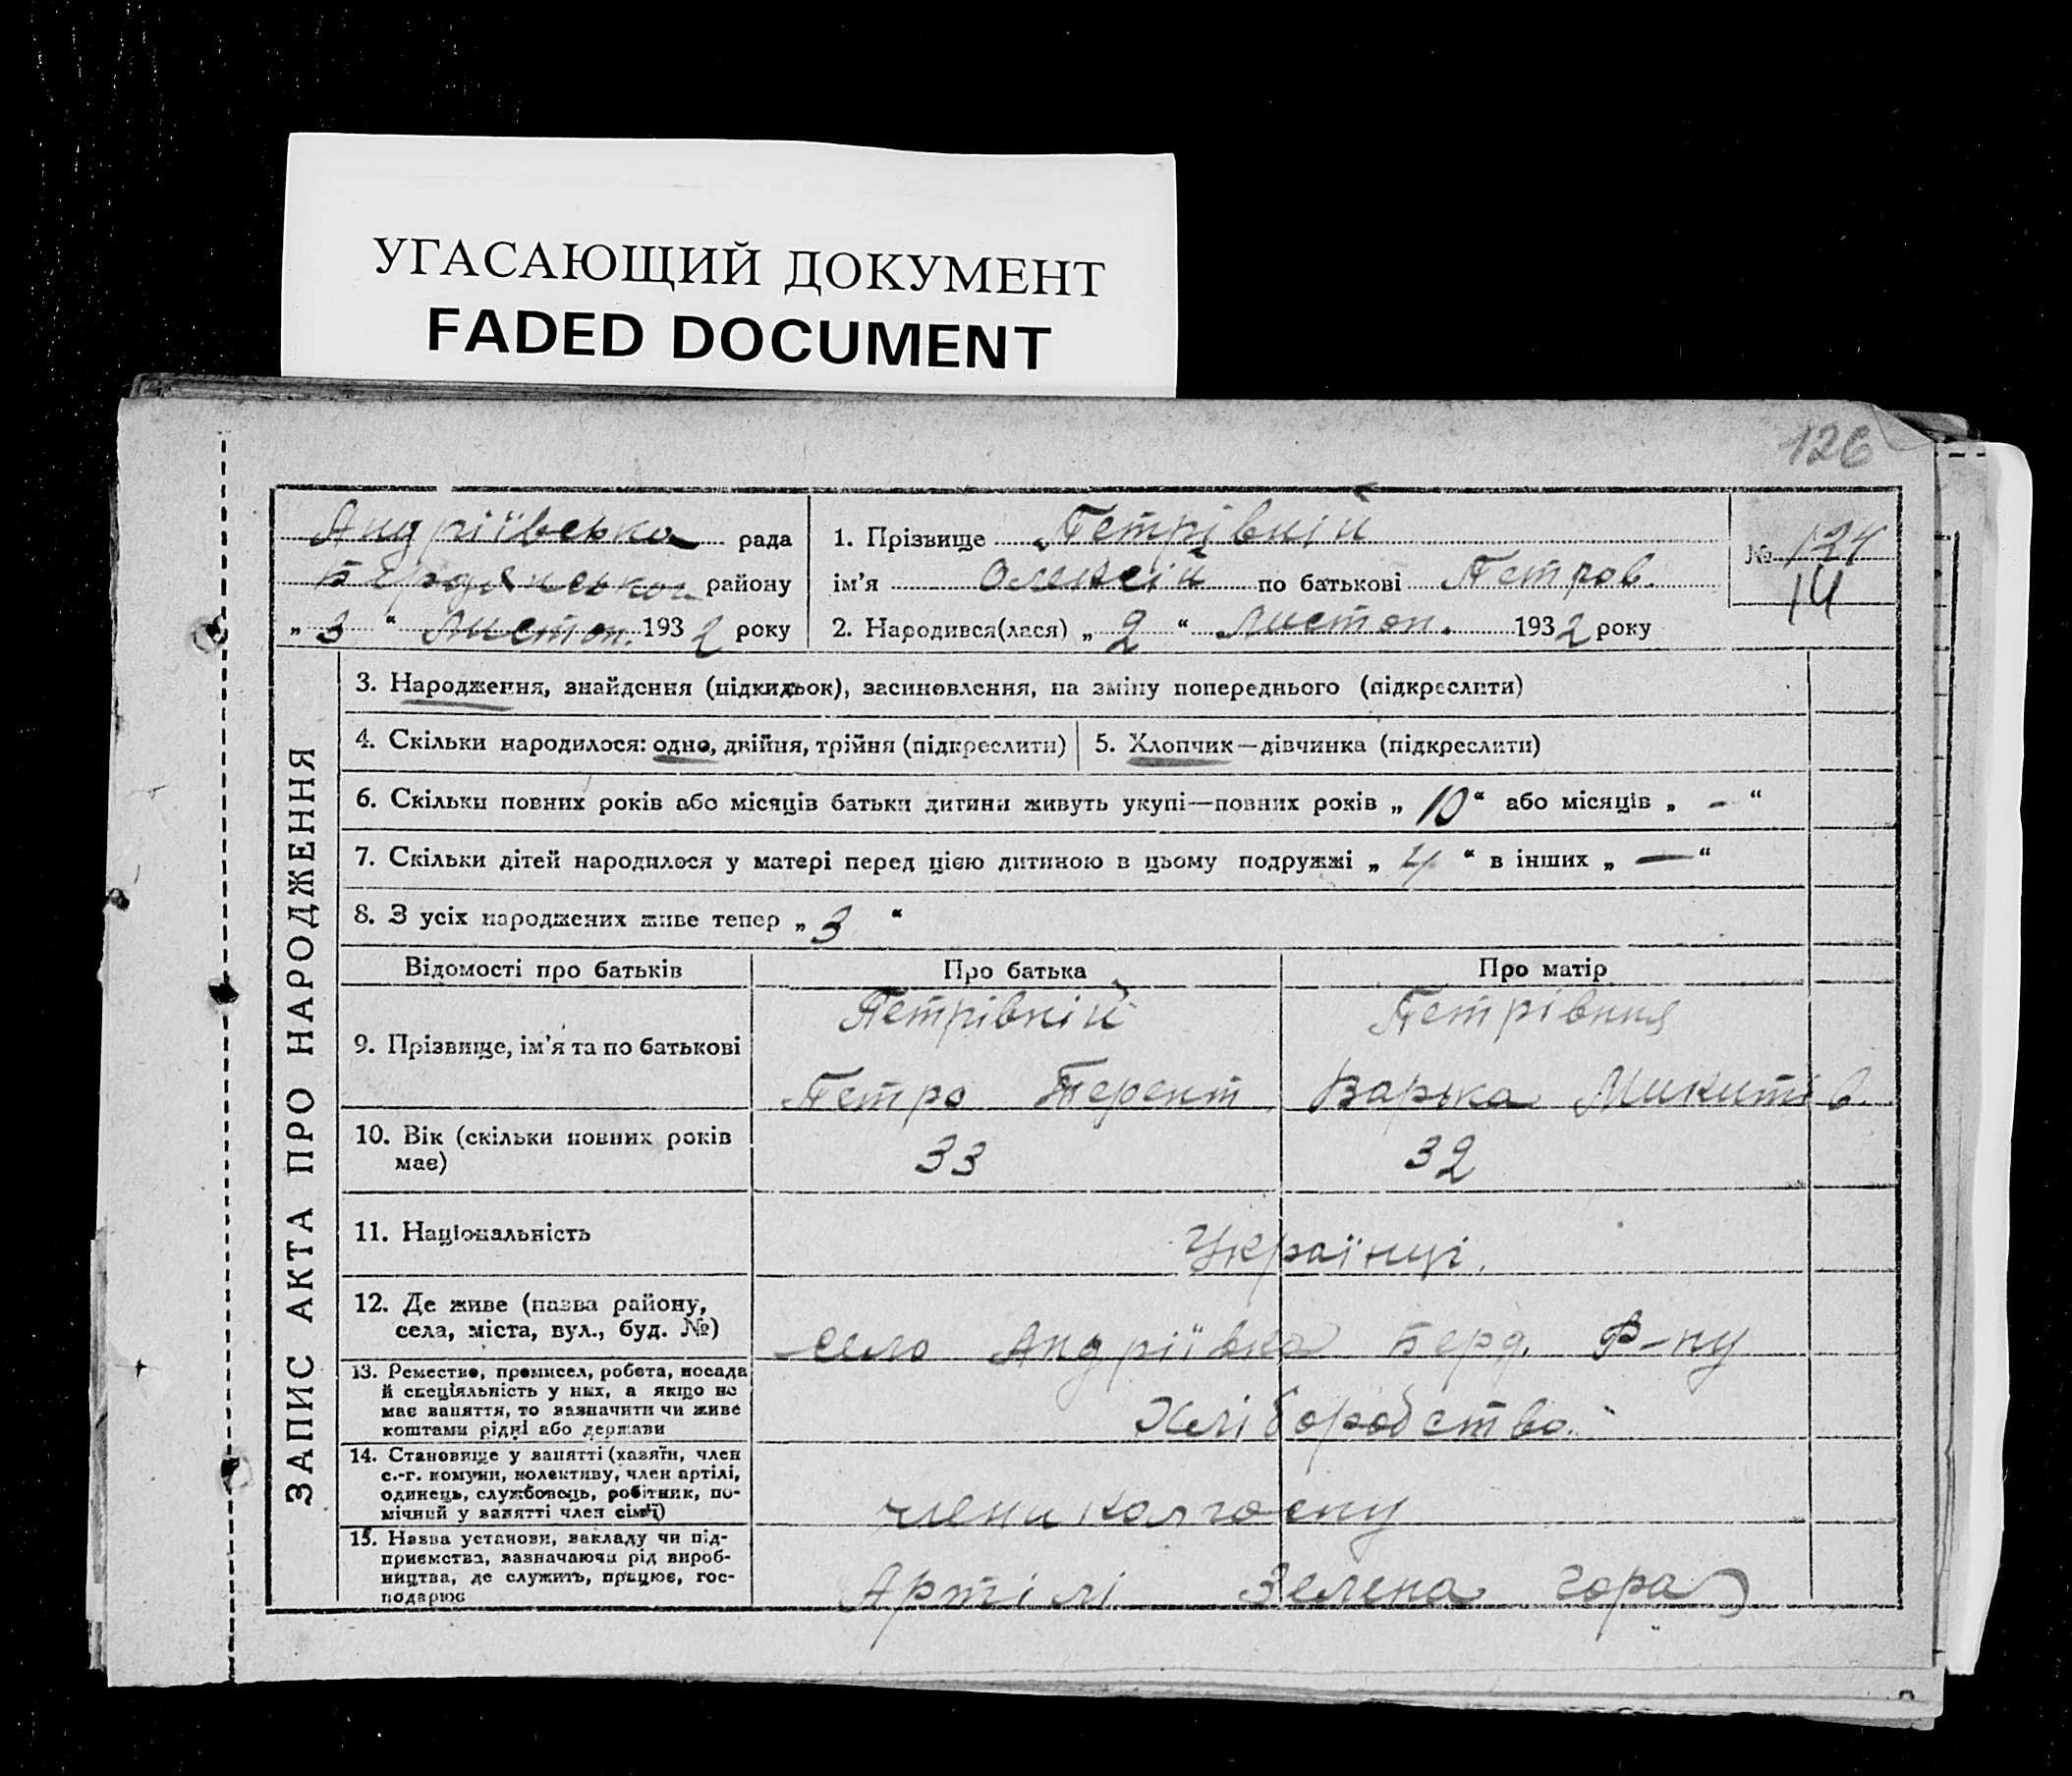 УГАСАЮЩИЙ ДОКУМЕНТ
FADED DOCUMENT
126
Андріївська рада
Бердянською району
„ 3 “ Листоп. 1932 року
1. Прізвище Петрівній
ім’я Олексій по батькові Петров.
2. Народився(лася) „ 2 “ Листоп. 1932 року
№ 124
14
ЗАПИС АКТА ПРО НАРОДЖЕННЯ
3. Народження, знайдення (підкидьок), засиновлення, на зміну попереднього (підкреслити)
4. Скільки народилося: одно, двійня, трійня (підкреслити)
5. Хлопчик—дівчинка (підкреслити)
6. Скільки повних років або місяців батьки дитини живуть укупі—повних років „ 10 “ або місяців „ - “
7. Скільки дітей народилося у матері перед цією дитиною в цьому подружжі „ 4 “ в інших „ — “
8. З усіх народжених живе тепер „ 3 “
Відомості про батьків
Про батька
Про матір
9. Прізвище, ім’я та по батькові
Петрівній
Петро Терент.
Петрівня
Варька Микитів.
10. Вік (скільки повних років
має)
33
32
11. Національність
Українці.
12. Де живе (назва району,
села, міста, вул., буд. №)
село Андріївка Берд. Р-ну
13. Ремество, промисел, робота, посада
й спеціяльність у них, а якщо не
має заняття, то зазначити чи живе
коштами рідні або держави
Хліборобство.
14. Становище у занятті (хазяїн, член
с.-г. комуни, колективу, член артілі,
одинець, службовець, робітник, по-
мічний у занятті член сім’ї)
члени колгоспу
15. Назва установи, закладу чи під-
приємства, зазначаючи рід вироб-
ництва, де служить, працює, гос-
подарює
Артілі Зелена гора